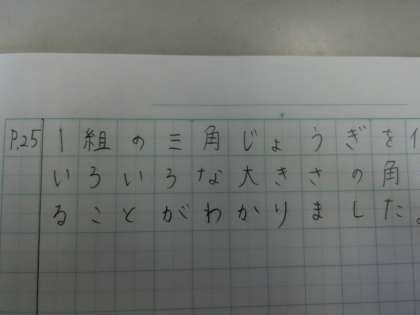 P.25 1組の三角じょうぎを
いろいろな大きさの角
ることがわかりました。